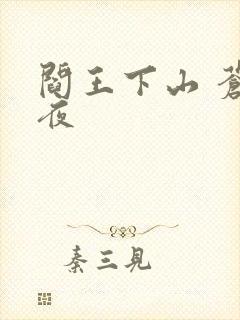 閻王下山 蒼
夜
秦三見